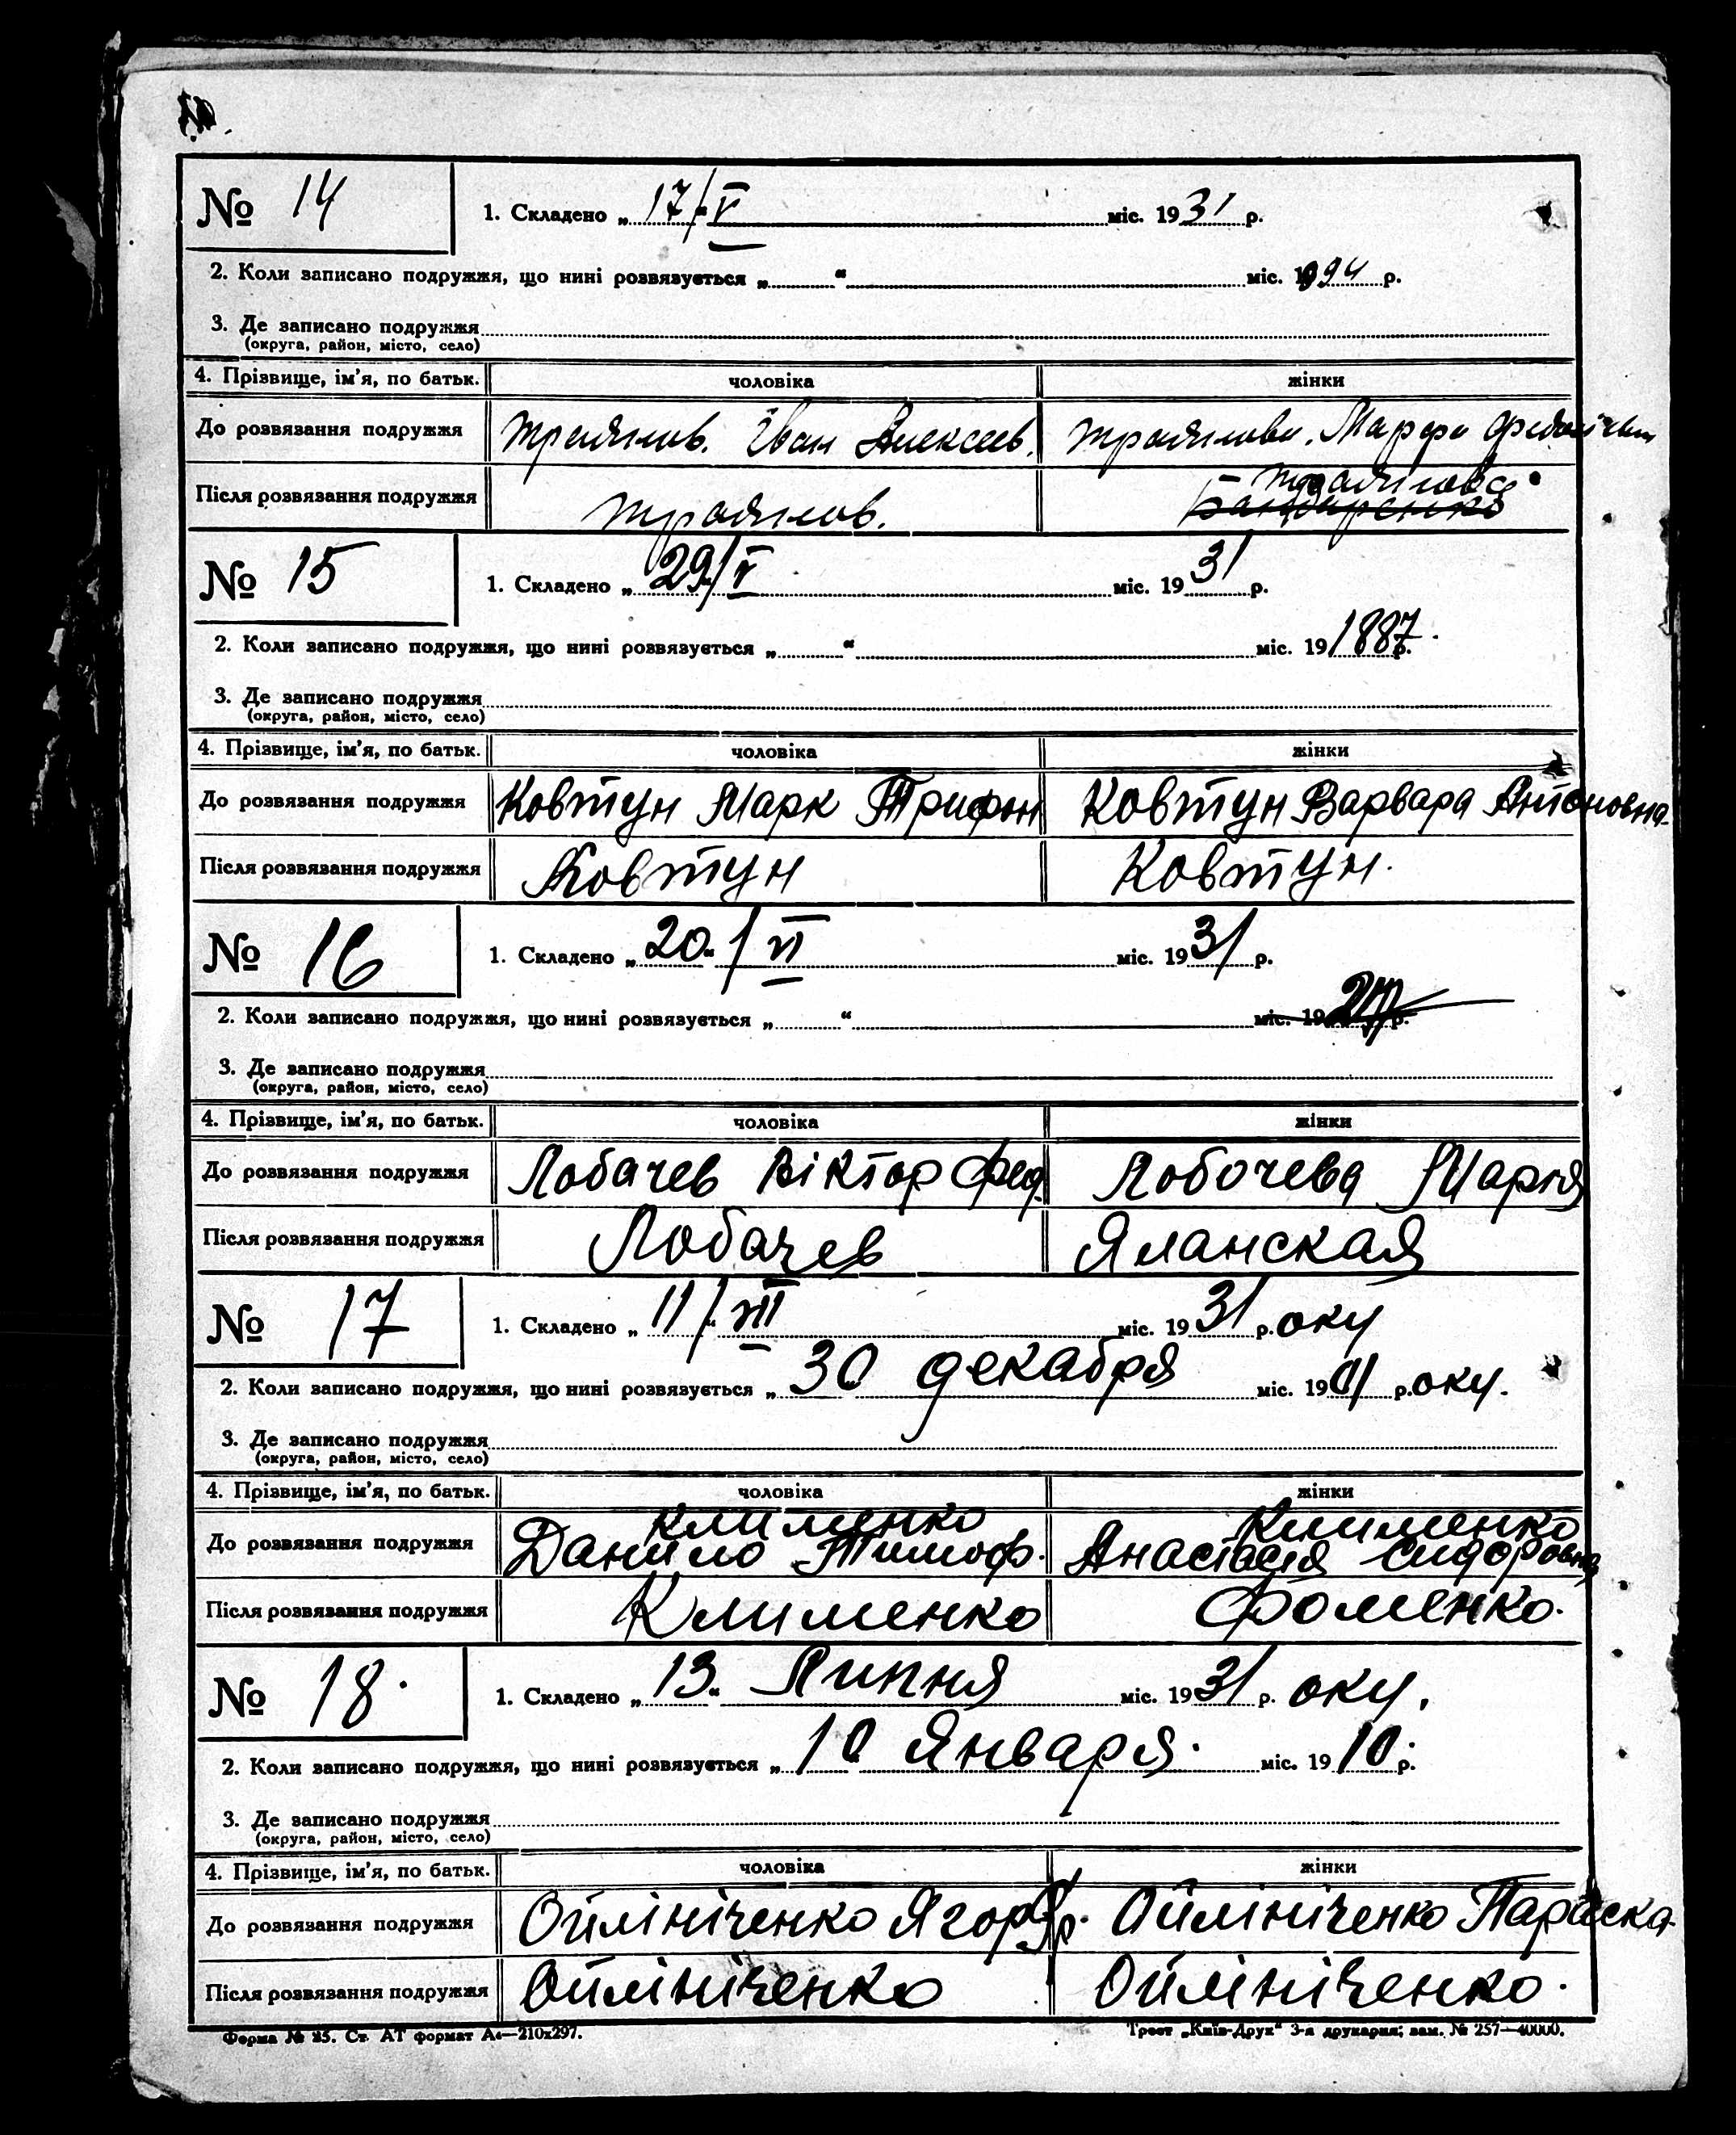 № 14
1. Складено „ 17/V міс. 1931 р.
2. Коли записано подружжя, що нині розвязується „ “ міс. р.
3. Де записано подружжя
(округа, район, місто, село)
4. Прізвище, ім’я, по батьк. чоловіка жінки
До розвязання подружжя Іван Алексеев.
Після розвязання подружжя
№ 15
1. Складено „ 29“/V міс. 1931 р.
2. Коли записано подружжя, що нині розвязується „ “ міс. 19 1887 р.
3. Де записано подружжя
(округа, район, місто, село)
4. Прізвище, ім’я, по батьк. чоловіка жінки
До розвязання подружжя Ковтун Марк Трифон Ковтун Варвара Антоновна
Після розвязання подружжя Ковтун Ковтун.
№ 16
1. Складено „ 20“ / VI міс. 1931 р.
2. Коли записано подружжя, що нині розвязується „ “ міс. 19 р.
3. Де записано подружжя
(округа, район, місто, село)
4. Прізвище, ім’я, по батьк. чоловіка жінки
До розвязання подружжя Лобачев Віктор Фед. Лобочева Мария
Після розвязання подружжя Лобачев Яланская
№ 17
1. Складено „ 11/“ VII міс. 1931 р.оку
2. Коли записано подружжя, що нині розвязується „ 30 декабря міс. 1901 р.оку.
3. Де записано подружжя
(округа, район, місто, село)
4. Прізвище, ім’я, по батьк. чоловіка жінки
Клименко Клименко
До розвязання подружжя Данило Тимоф. Анастасія Сидоровна
Після розвязання подружжя Клименко Фоменко.
№ 18.
1. Складено „ 13“ Липня міс. 1931 р. оку.
2. Коли записано подружжя, що нині розвязується „ 10 Января. міс. 1910 р.
3. Де записано подружжя
(округа, район, місто, село)
4. Прізвище, ім’я, по батьк. чоловіка жінки
До розвязання подружжя Ойлініченко Ягор Ойлініченко Параска
Після розвязання подружжя Ойлініченко Ойлініченко.
Форма № 25. Ст. АТ формат А4—210x297. Трест „Київ-Друк“ 3-я друкарня; зам. № 257—40000.